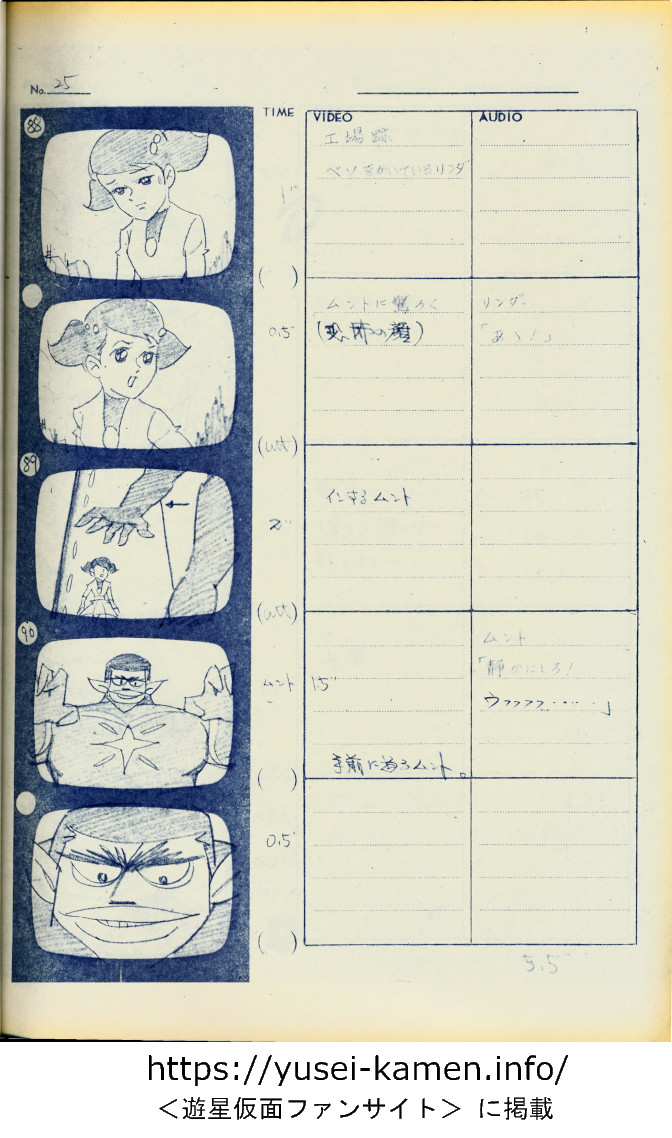 No. 25
TIME
VIDEO
AUDIO
88
工場跡
ベソをかいているリンダ
1"
( )
ムントに驚ろく
リンダ
0.5"
「あゝ!」
(wt)
89
インするムント
2"
(wt)
90
ムント
ムント
1.5"
「静かにしろ!
ウフフフフ・・・・・」
手前に迫るムント。
( )
0.5"
( )
5.5"
https://yusei-kamen.info/
<遊星仮面ファンサイト> に掲載